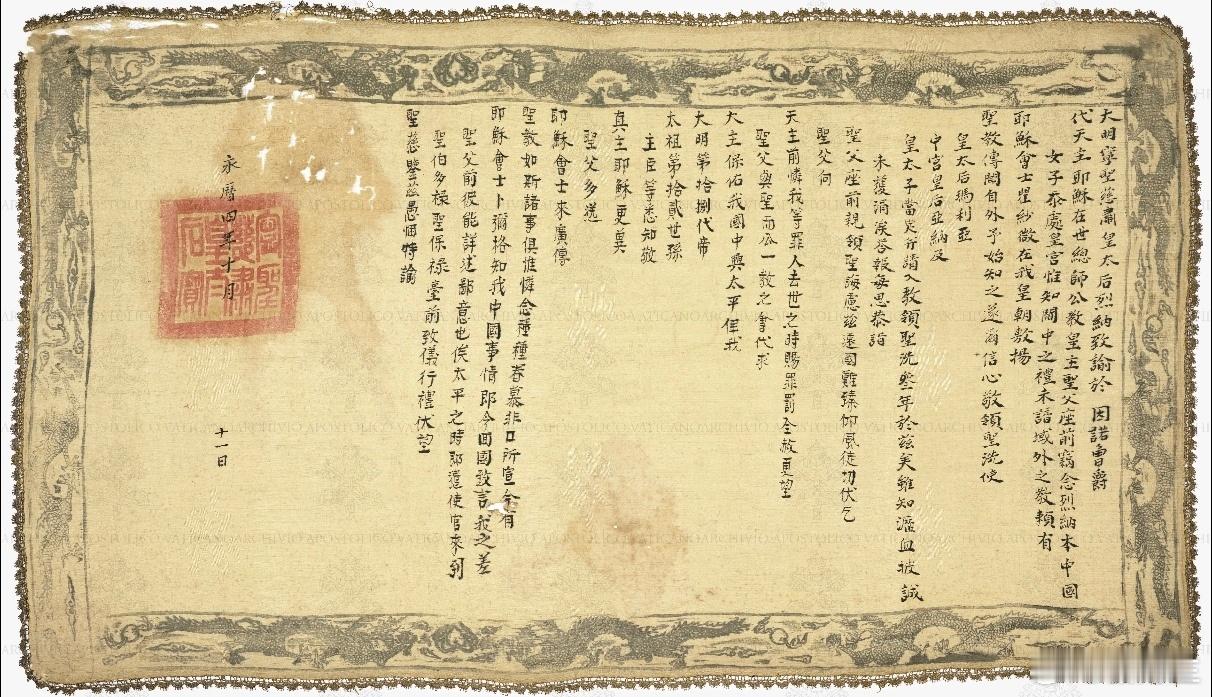 大明寧聖慈肅皇太后烈納致諭於 因諾曾爵
代天主耶穌在世總師公教皇主聖父座前竊念烈納本中國
女子忝處皇宮惟知閫中之禮未諳域外之教賴有
耶穌會士瞿紗微在我皇朝敷揚
聖教傳聞自外予始知之遂爾信心敬領聖洗使
皇太后瑪利亞
中宮皇后亞納及
皇太子當定並請入教領聖洗叁年於茲矣雖知瀝血披誠
未獲涓涘答報每思恭詣
聖父座前親領聖誨慮茲遠國難臻仰風徒切伏乞
聖父向
天主前憐我等罪人去世之時賜罪罰全赦更望
聖父與聖而公一教之會代求
天主保佑我國中興太平俾我
大明第拾捌代帝
太祖第拾貳世孫
主臣等悉知敬
真主耶穌更冀
聖父多送
耶穌會士來廣傳
聖教如斯諸事俱惟憐念種種眷慕非口所宣今有
耶穌會士卜彌格知我中國事情即令回國致言我之差
聖父前彼能詳述鄙意也俟太平之時即遣使官來到
聖伯多祿聖保祿臺前致儀行禮伏望
聖慈鑒茲愚悃特諭
永曆四年十月
十一日
寧聖慈肅皇太后寶
ARCHIVIO APOSTOLICO VATICANO